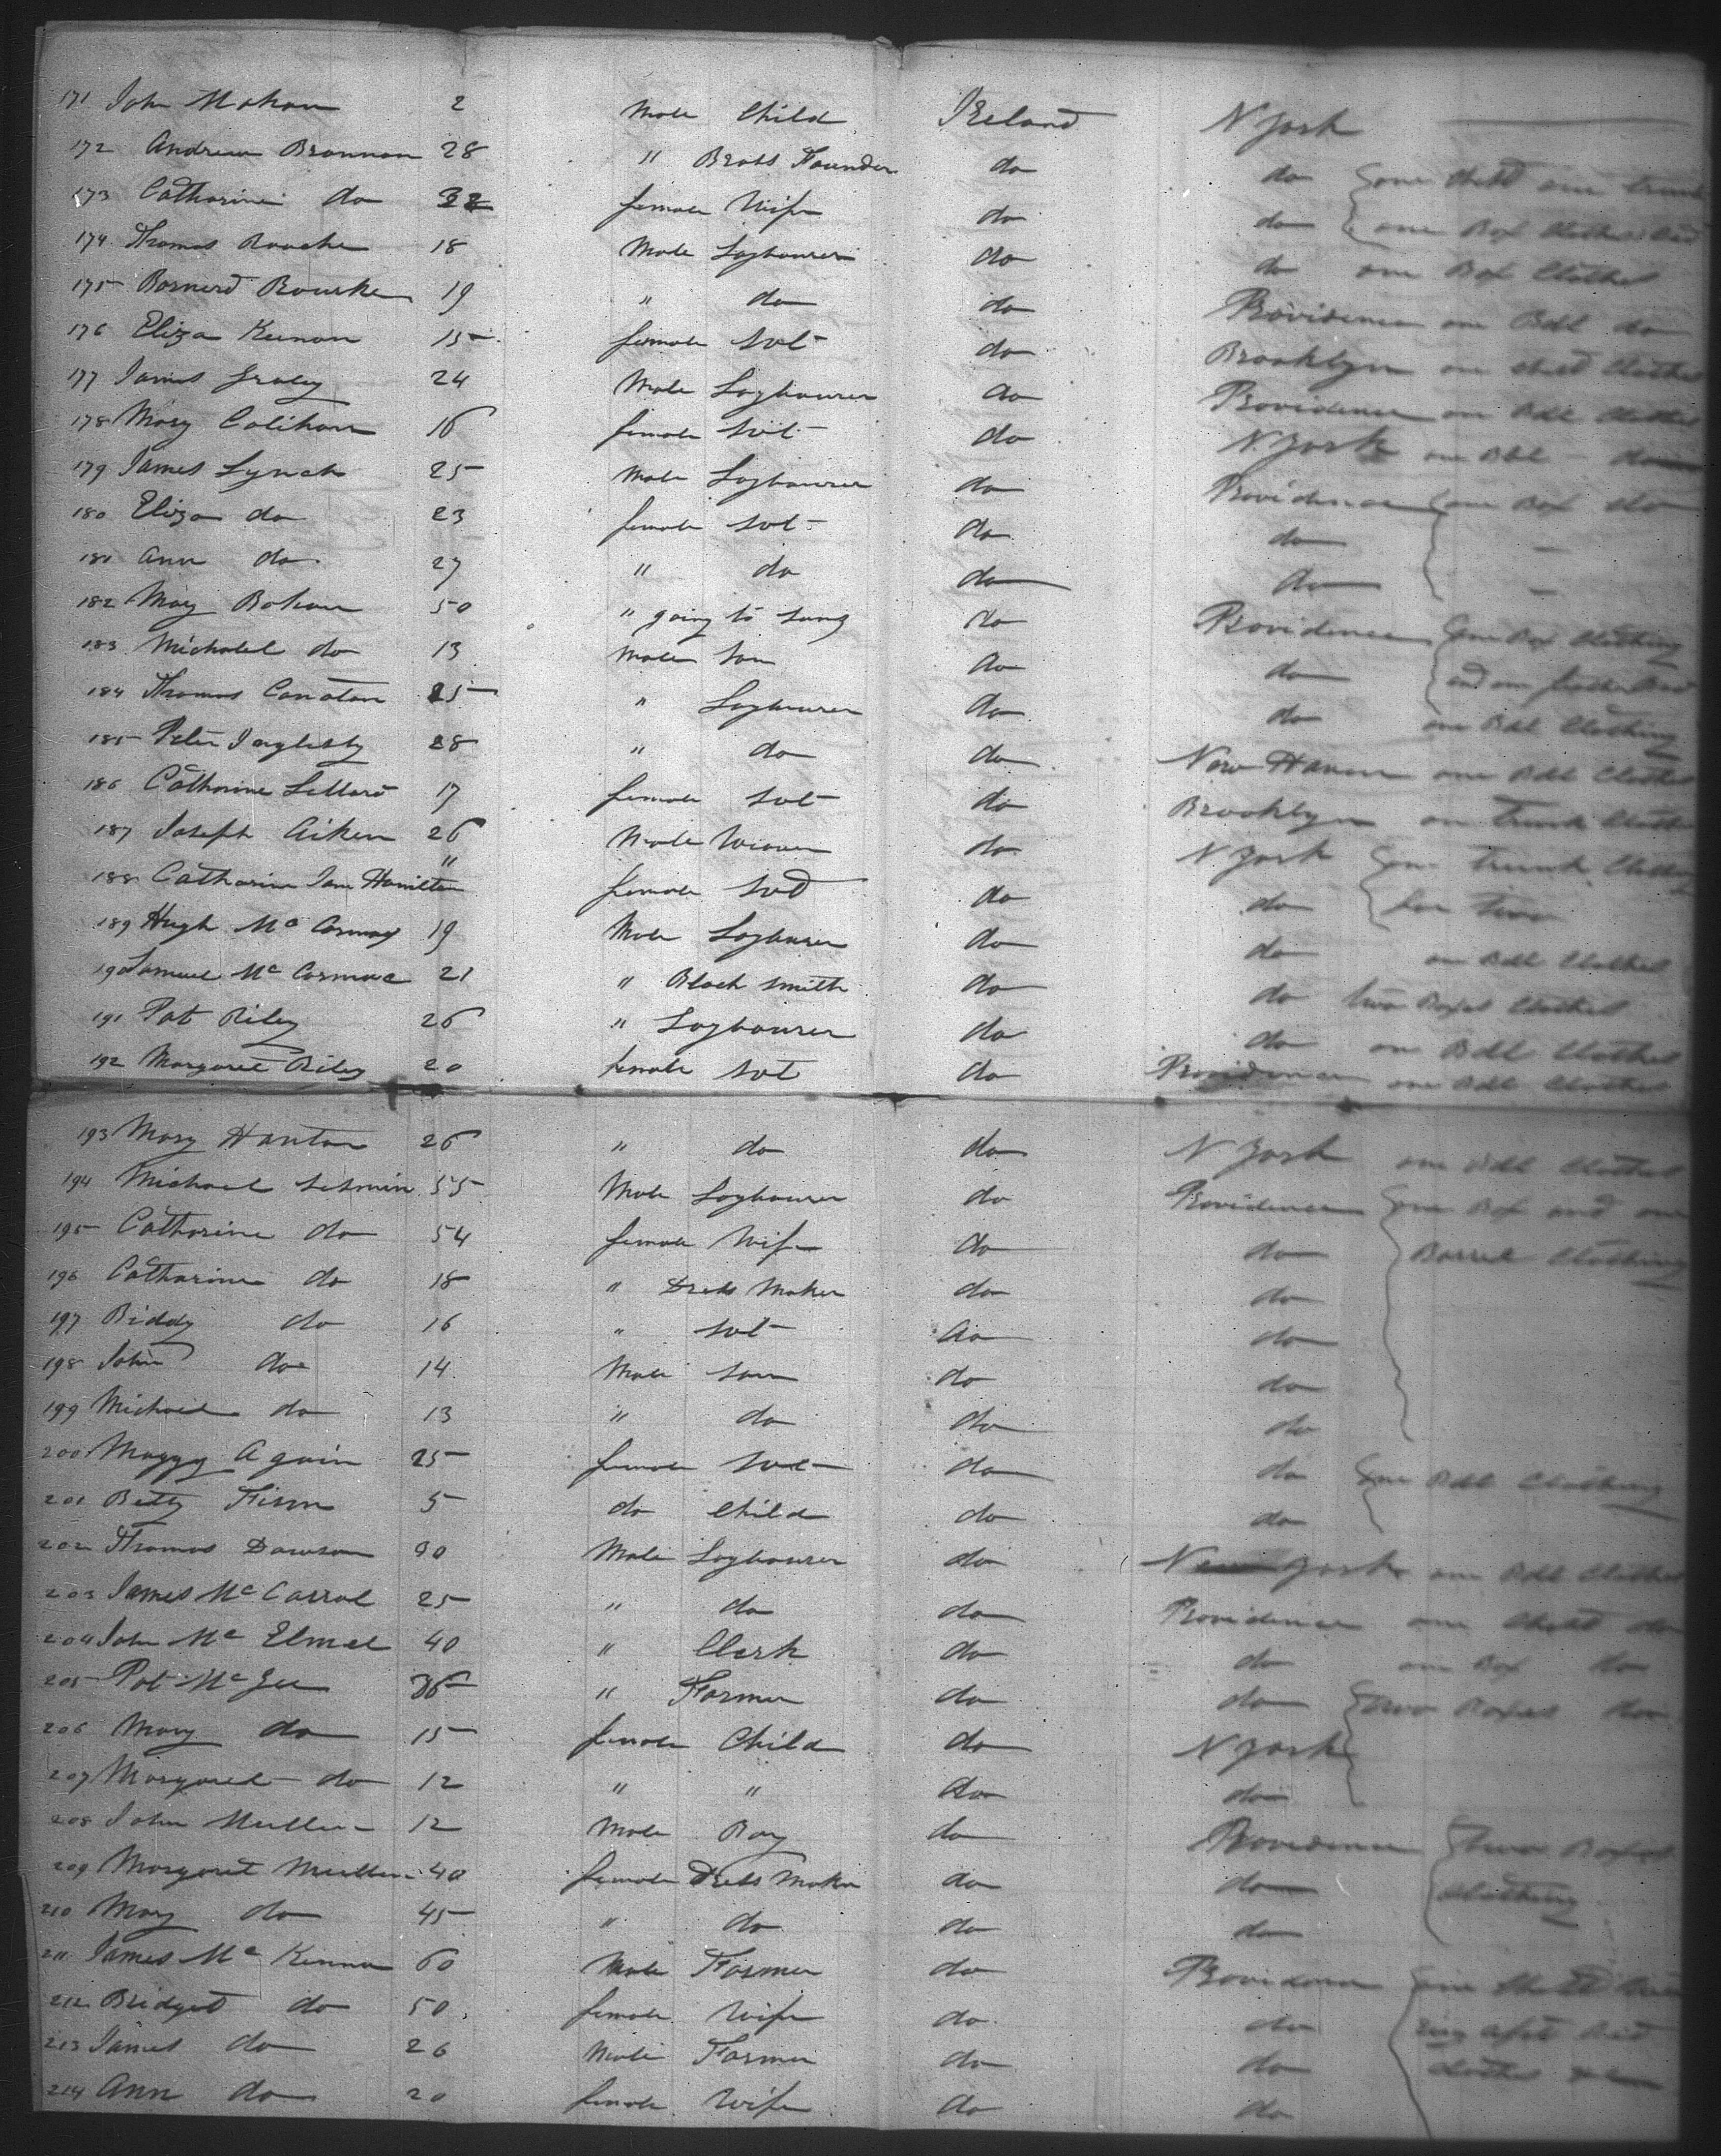 171 John Mahan 2 Male Child Ireland N York
172 Andrew Brannan 28 " Brass Founder do do one Chest one trunk
173 Catharine do 32 female Wife do do one Box Clothes Bed
174 Thomas Roache 18 Male Laghourer do do one Box Clothes
175 Barnerd Rourke 19 " do do Providence one Bdl do
176 Eliza Keenan 15 female Svt do Brooklyn one Chest Clothes
177 James 24 Male Laghourer do Providence one Bdl Clothes
178 Mary Calihan 16 female Svt do N. York one Bdl do
179 James Lynch 25 Male Laghourer do Providence one Box do
180 Eliza do 23 female Svt do do
181 Ann do 27 " do do do
182 Mary Bohan 50 " going to do Providence One Box Clothing
183 Michael do 13 Male Son do do and one feather Bed
184 Thomas Canatan 25 " Laghourer do do one Bdl Clothing
185 Peter 28 " do do New Haven one Bdl Clothes
186 Catharine 17 female Svt do Brooklyn one trunk Clothes
187 Joseph Aiken 26 Male Weaver do N York One trunk Clothes
188 Catharine Jane Hamilton " female Svt do do for two
189 Hugh Mc Cormac 19 Male Laghourer do do one Bdl Clothes
190 Samuel Mc Cormac 21 " Black smith do do two Boxes Clothes
191 Pat Riley 26 " Laghourer do do one Bdl Clothes
192 Margaret Riley 20 female Svt do Providence one Bdl Clothes
193 Mary Hanton 26 " do do N York one Bdl Clothes
194 Michael 55 Male Laghourer do Providence One Box and one
195 Catharine do 54 female Wife do do Barrel Clothing
196 Catharine do 18 " Dress Maker do do
197 Biddy do 16 " Svt do do
198 John do 14 Male Son do do
199 Michael do 13 " do do do
200 Maggy Aguin 25 female Svt do do One Bdl Clothing
201 Betty 5 do Child do do
202 Thomas Dawson 90 Male Laghourer do New York one Bdl Clothes
203 James Mc Carrol 25 " do do Providence one Chest do
204 John Mc Elmel 40 " Clerk do do one Box do
205 Pat McGee 36 " Farmer do do two Boxes do
206 Mary do 15 female Child do N York
207 Margaret do 12 " " do do
208 John Mullen 12 Male Boy do Providence two Boxes
209 Margaret Mullen 40 female Dress Maker do do Clothing
210 Mary do 45 " do do do
211 James Mc Kenna 60 Male Farmer do Providence one Chest
212 Bridget do 50 female Wife do do
213 James do 26 Male Farmer do do Clothes
214 Ann do 20 female Wife do do